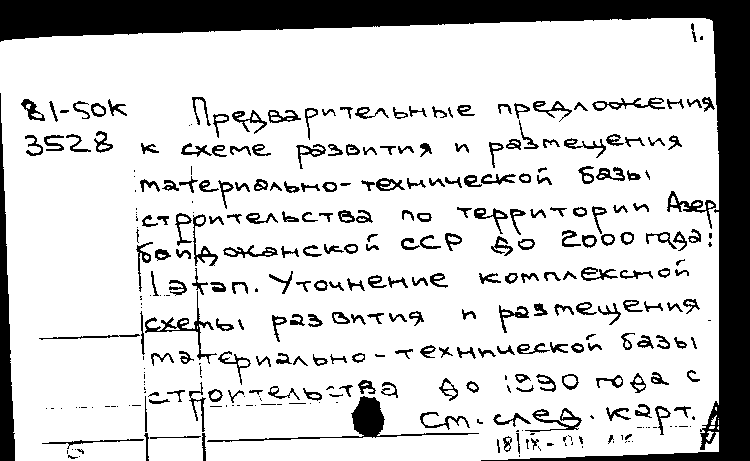 1.
81-50К Предварительные предложения
3528 к схеме развития и размещения
материально-технической базы
строительства по территории Азер-
байджанской ССР до 2000 года:
1 этап. Уточнение комплексной
схемы развития и размещения
материально-технической базы
строительства до 1990 года с
См. след. карт.
18/IX-81
6